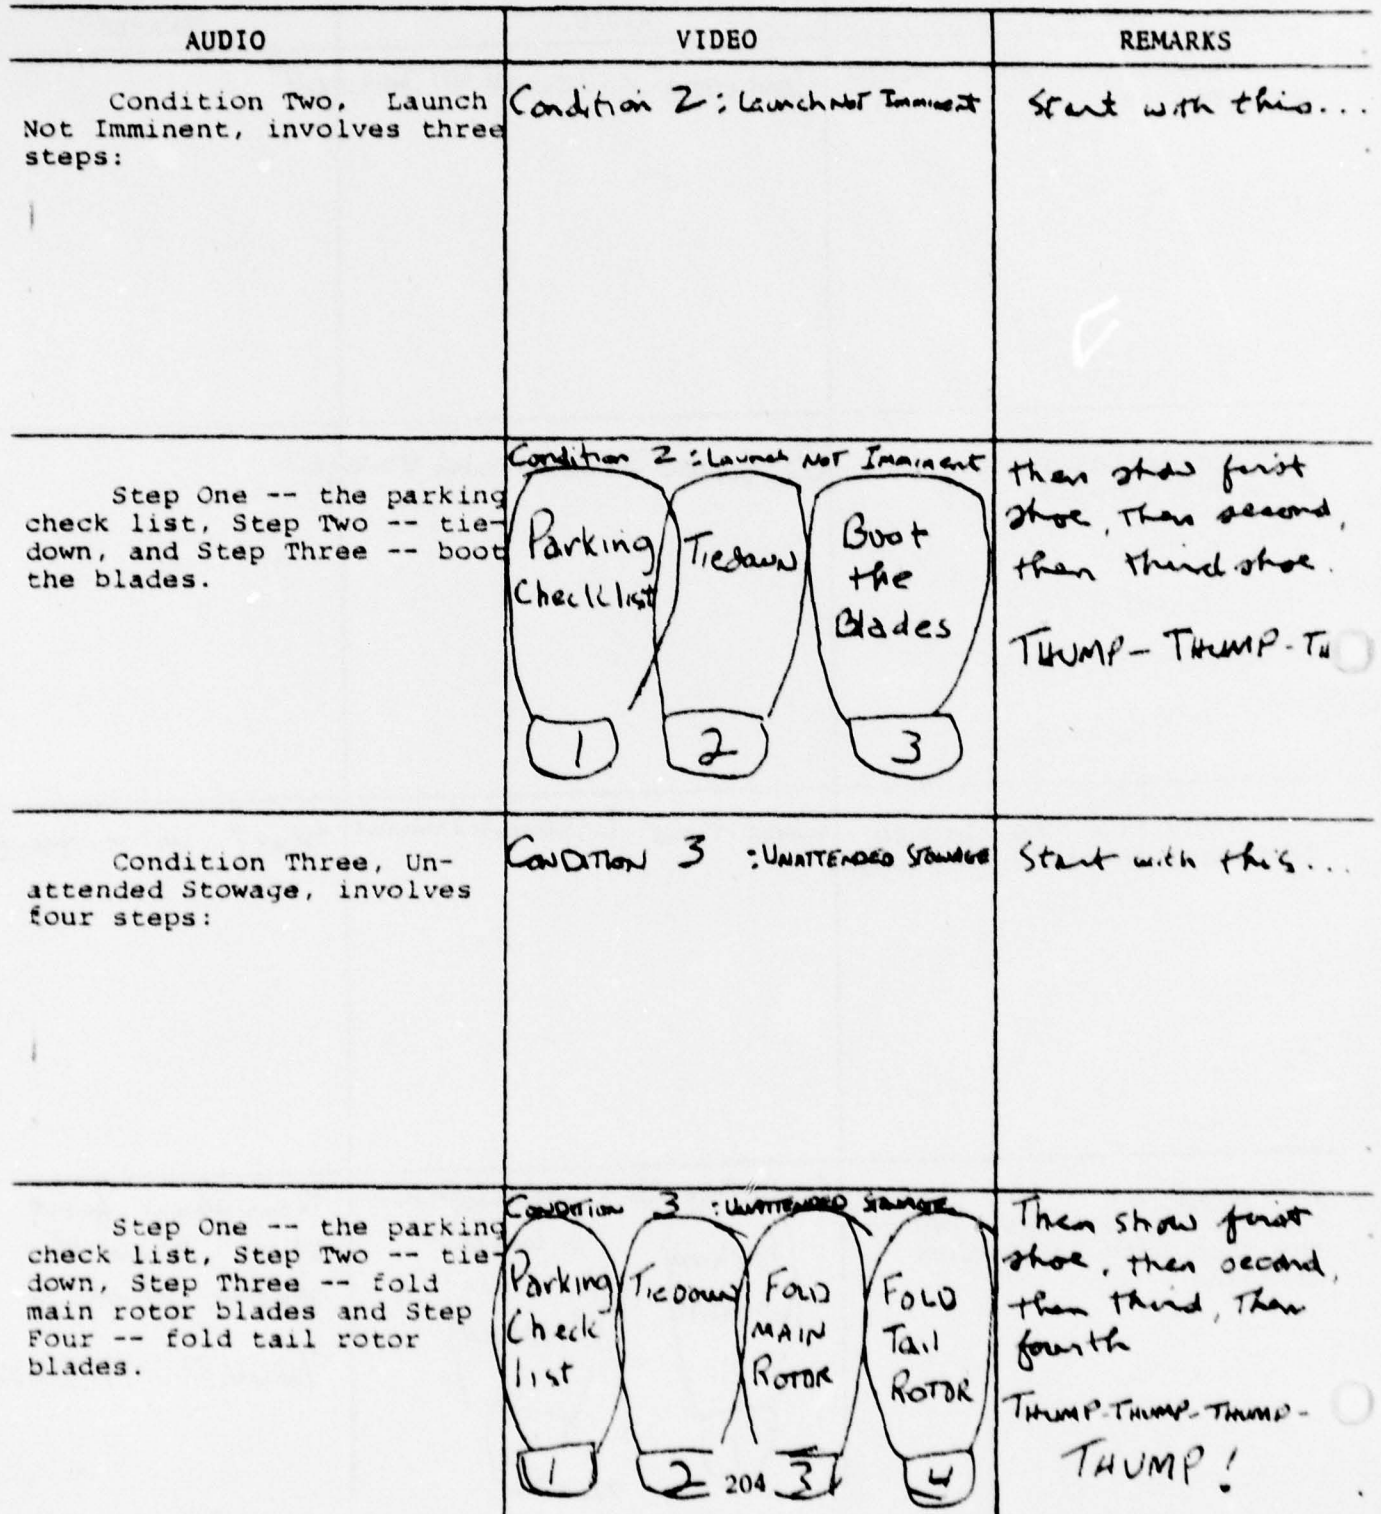 AUDIO
VIDEO
REMARKS
Condition Two, Launch
Not Imminent, involves three
steps:
Condition 2 : Launch Not Imminent
Start with this...
Step One -- the parking
check list, Step Two -- tie-
down, and Step Three -- boot
the blades.
Condition 2 : Launch Not Imminent
Parking
Checklist
1
Tiedown
2
Boot
the
Blades
3
then show first
shoe, then second,
then third shoe.
THUMP - THUMP - TH
Condition Three, Un-
attended Stowage, involves
four steps:
CONDITION 3 : UNATTENDED STOWAGE
Start with this...
Step One -- the parking
check list, Step Two -- tie-
down, Step Three -- fold
main rotor blades and Step
Four -- fold tail rotor
blades.
CONDITION 3 : UNATTENDED STOWAGE
Parking
Check
list
1
Tiedown
2
FOLD
MAIN
ROTOR
3
FOLD
Tail
ROTOR
4
Then show first
shoe, then second,
then third, then
fourth
THUMP-THUMP-THUMP-
THUMP!
204